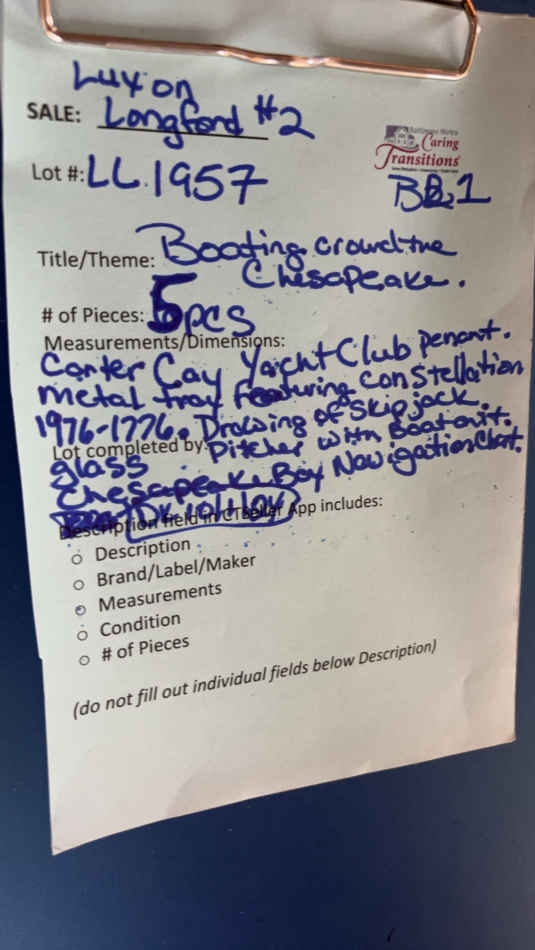 Lux on
SALE: Longford #2
Baltimore Metro
Caring
Transitions
Lot #: LL.1957
BB.1
Title/Theme: Boating crowd the
Chesapeake.
# of Pieces: 5 pcs
Measurements/Dimensions:
Carter Cay Yacht Club penant.
metal tray featuring Constellation
1976-1776. Drawing of Skipjack.
Lot completed by:
glass Pitcher with Boat on it.
Chesapeake Bay Navigation Chart.
Description field in CTBids Seller App includes:
Description
Brand/Label/Maker
Measurements
Condition
# of Pieces
(do not fill out individual fields below Description)